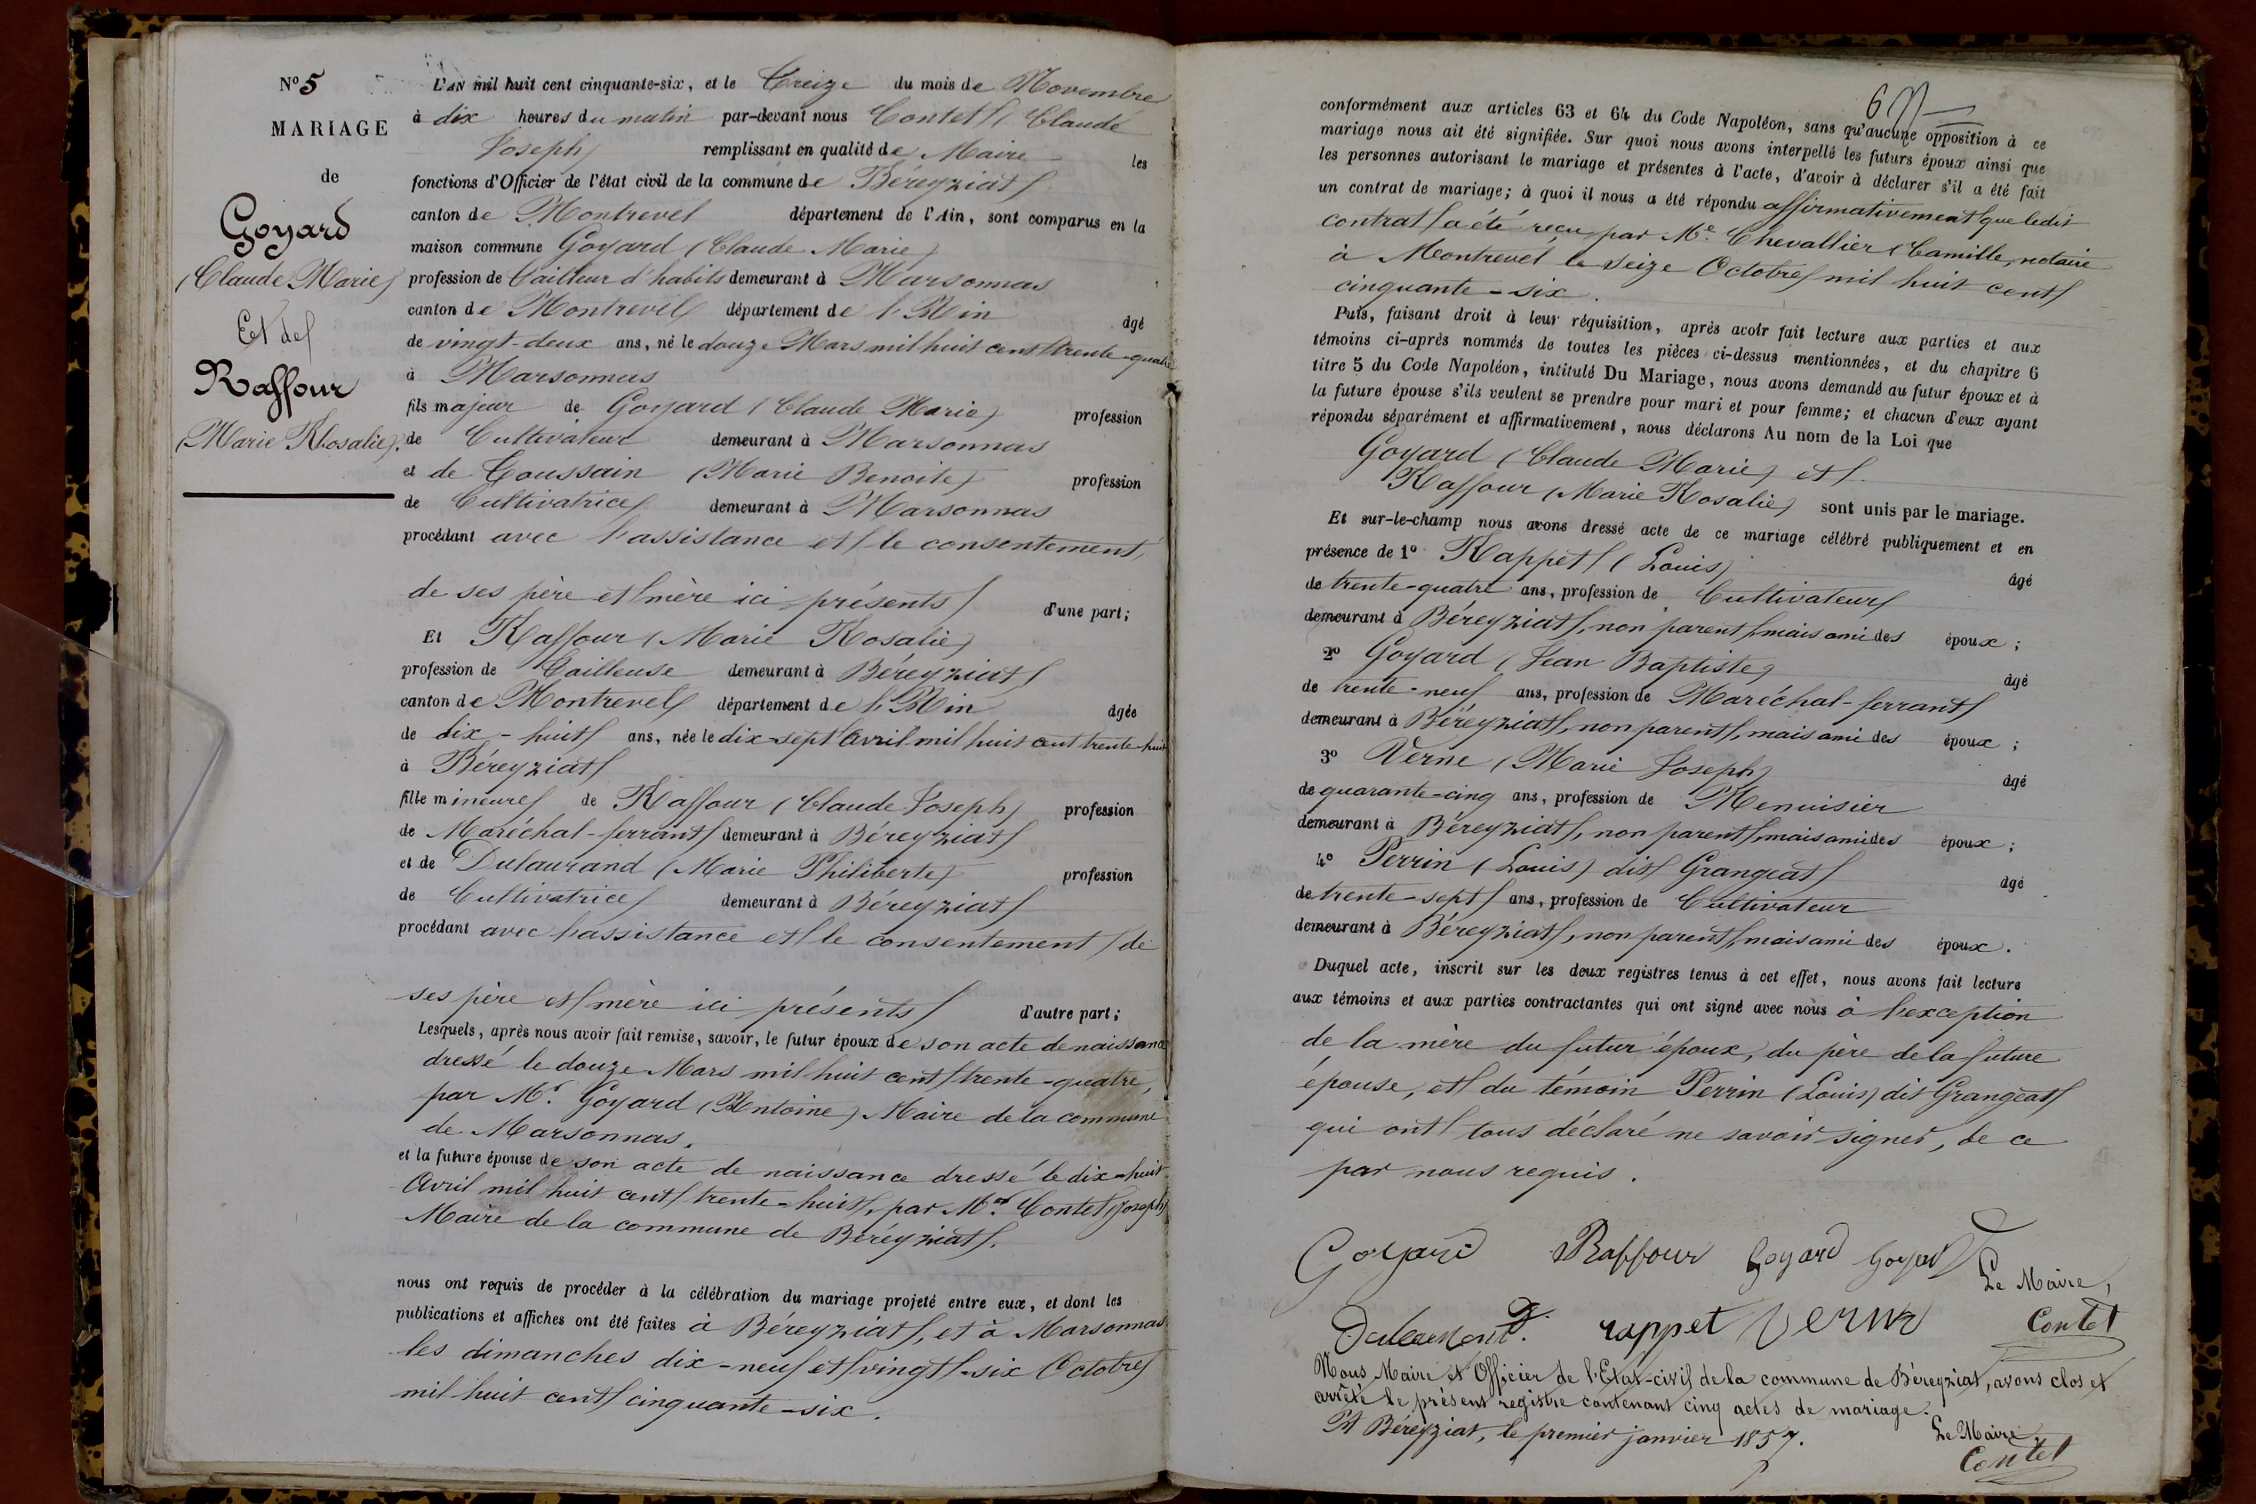 Nº 5
MARIAGE
de
Goyard
(Claude Marie)
Et de
Raffour
(Marie Rosalie).
L'AN mil huit cent cinquante-six, et le Treize du mois de Novembre
à dix heures du matin par-devant nous Contet (Claude
Joseph) remplissant en qualité de Maire les
fonctions d'Officier de l'état civil de la commune de Béreyziat
canton de Montrevel département de l'Ain, sont comparus en la
maison commune Goyard (Claude Marie)
profession de Tailleur d'habits demeurant à Marsonnas
canton de Montrevel département de l'Ain âgé
de vingt-deux ans, né le douze Mars mil huit cent trente-quatre
à Marsonnas
fils majeur de Goyard (Claude Marie) profession
de Cultivateur demeurant à Marsonnas
et de Toussain (Marie Benoite) profession
de Cultivatrice demeurant à Marsonnas
procédant avec l'assistance et le consentement
de ses père et mère ici présents d'une part;
Et Raffour (Marie Rosalie)
profession de Tailleuse demeurant à Béreyziat
canton de Montrevel département de l'Ain âgée
de dix-huit ans, née le dix-sept Avril mil huit cent trente-huit
à Béreyziat
fille mineure de Raffour (Claude Joseph) profession
de Maréchal-ferrant demeurant à Béreyziat
et de Dulaurand (Marie Philiberte) profession
de Cultivatrice demeurant à Béreyziat
procédant avec l'assistance et le consentement de
ses père et mère ici présents d'autre part;
Lesquels, après nous avoir fait remise, savoir, le futur époux de son acte de naissance
dressé le douze Mars mil huit cent trente-quatre,
par Mr. Goyard (Antoine) Maire de la commune
de Marsonnas.
et la future épouse de son acte de naissance dressé le dix-huit
Avril mil huit cent trente-huit, par Mr. Contet (Joseph)
Maire de la commune de Béreyziat.
nous ont requis de procéder à la célébration du mariage projeté entre eux, et dont les
publications et affiches ont été faites à Béreyziat, et à Marsonnas
les dimanches dix-neuf et vingt-six Octobre
mil huit cent cinquante-six.
conformément aux articles 63 et 64 du Code Napoléon, sans qu'aucune opposition à ce
mariage nous ait été signifiée. Sur quoi nous avons interpellé les futurs époux ainsi que
les personnes autorisant le mariage et présentes à l'acte, d'avoir à déclarer s'il a été fait
un contrat de mariage; à quoi il nous a été répondu affirmativement que ledit
contrat a été reçu par Me. Chevallier (Camille, notaire
à Montrevel, le seize Octobre mil huit cent
cinquante-six.
Puis, faisant droit à leur réquisition, après avoir fait lecture aux parties et aux
témoins ci-après nommés de toutes les pièces ci-dessus mentionnées, et du chapitre 6
titre 5 du Code Napoléon, intitulé Du Mariage, nous avons demandé au futur époux et à
la future épouse s'ils veulent se prendre pour mari et pour femme; et chacun d'eux ayant
répondu séparément et affirmativement, nous déclarons Au nom de la Loi que
Goyard (Claude Marie) et
Raffour (Marie Rosalie) sont unis par le mariage.
Et sur-le-champ nous avons dressé acte de ce mariage célébré publiquement et en
présence de 1º Rappet (Louis) âgé
de trente-quatre ans, profession de Cultivateur
demeurant à Béreyziat, non parent, mais ami des époux;
2º Goyard (Jean Baptiste) âgé
de trente-neuf ans, profession de Maréchal-ferrant
demeurant à Béreyziat, non parent, mais ami des époux;
3º Verne (Marie Joseph) âgé
de quarante-cinq ans, profession de Menuisier
demeurant à Béreyziat, non parent, mais ami des époux;
4º Perrin (Louis) dit Grangeat âgé
de trente-sept ans, profession de Cultivateur
demeurant à Béreyziat, non parent, mais ami des époux.
Duquel acte, inscrit sur les deux registres tenus à cet effet, nous avons fait lecture
aux témoins et aux parties contractantes qui ont signé avec nous à l'exception
de la mère du futur époux, du père de la future
épouse, et du témoin Perrin (Louis) dit Grangeat
qui ont tous déclaré ne savoir signer, de ce
par nous requis.
Goyard Raffour Goyard Goyard
Le Maire,
rappet Verne Contet
Nous Maire et Officier de l'Etat-civil de la commune de Béreyziat, avons clos et
arrêté le présent registre contenant cinq actes de mariage.
A Béreyziat, le premier janvier 1857.
Le Maire
Contet